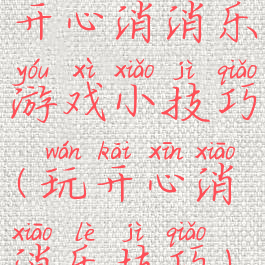 开心消消乐
yóu xì xiǎo jì qiǎo
游戏小技巧
wán kāi xīn xiāo
(玩开心消
xiāo lè jì qiǎo
消乐技巧)